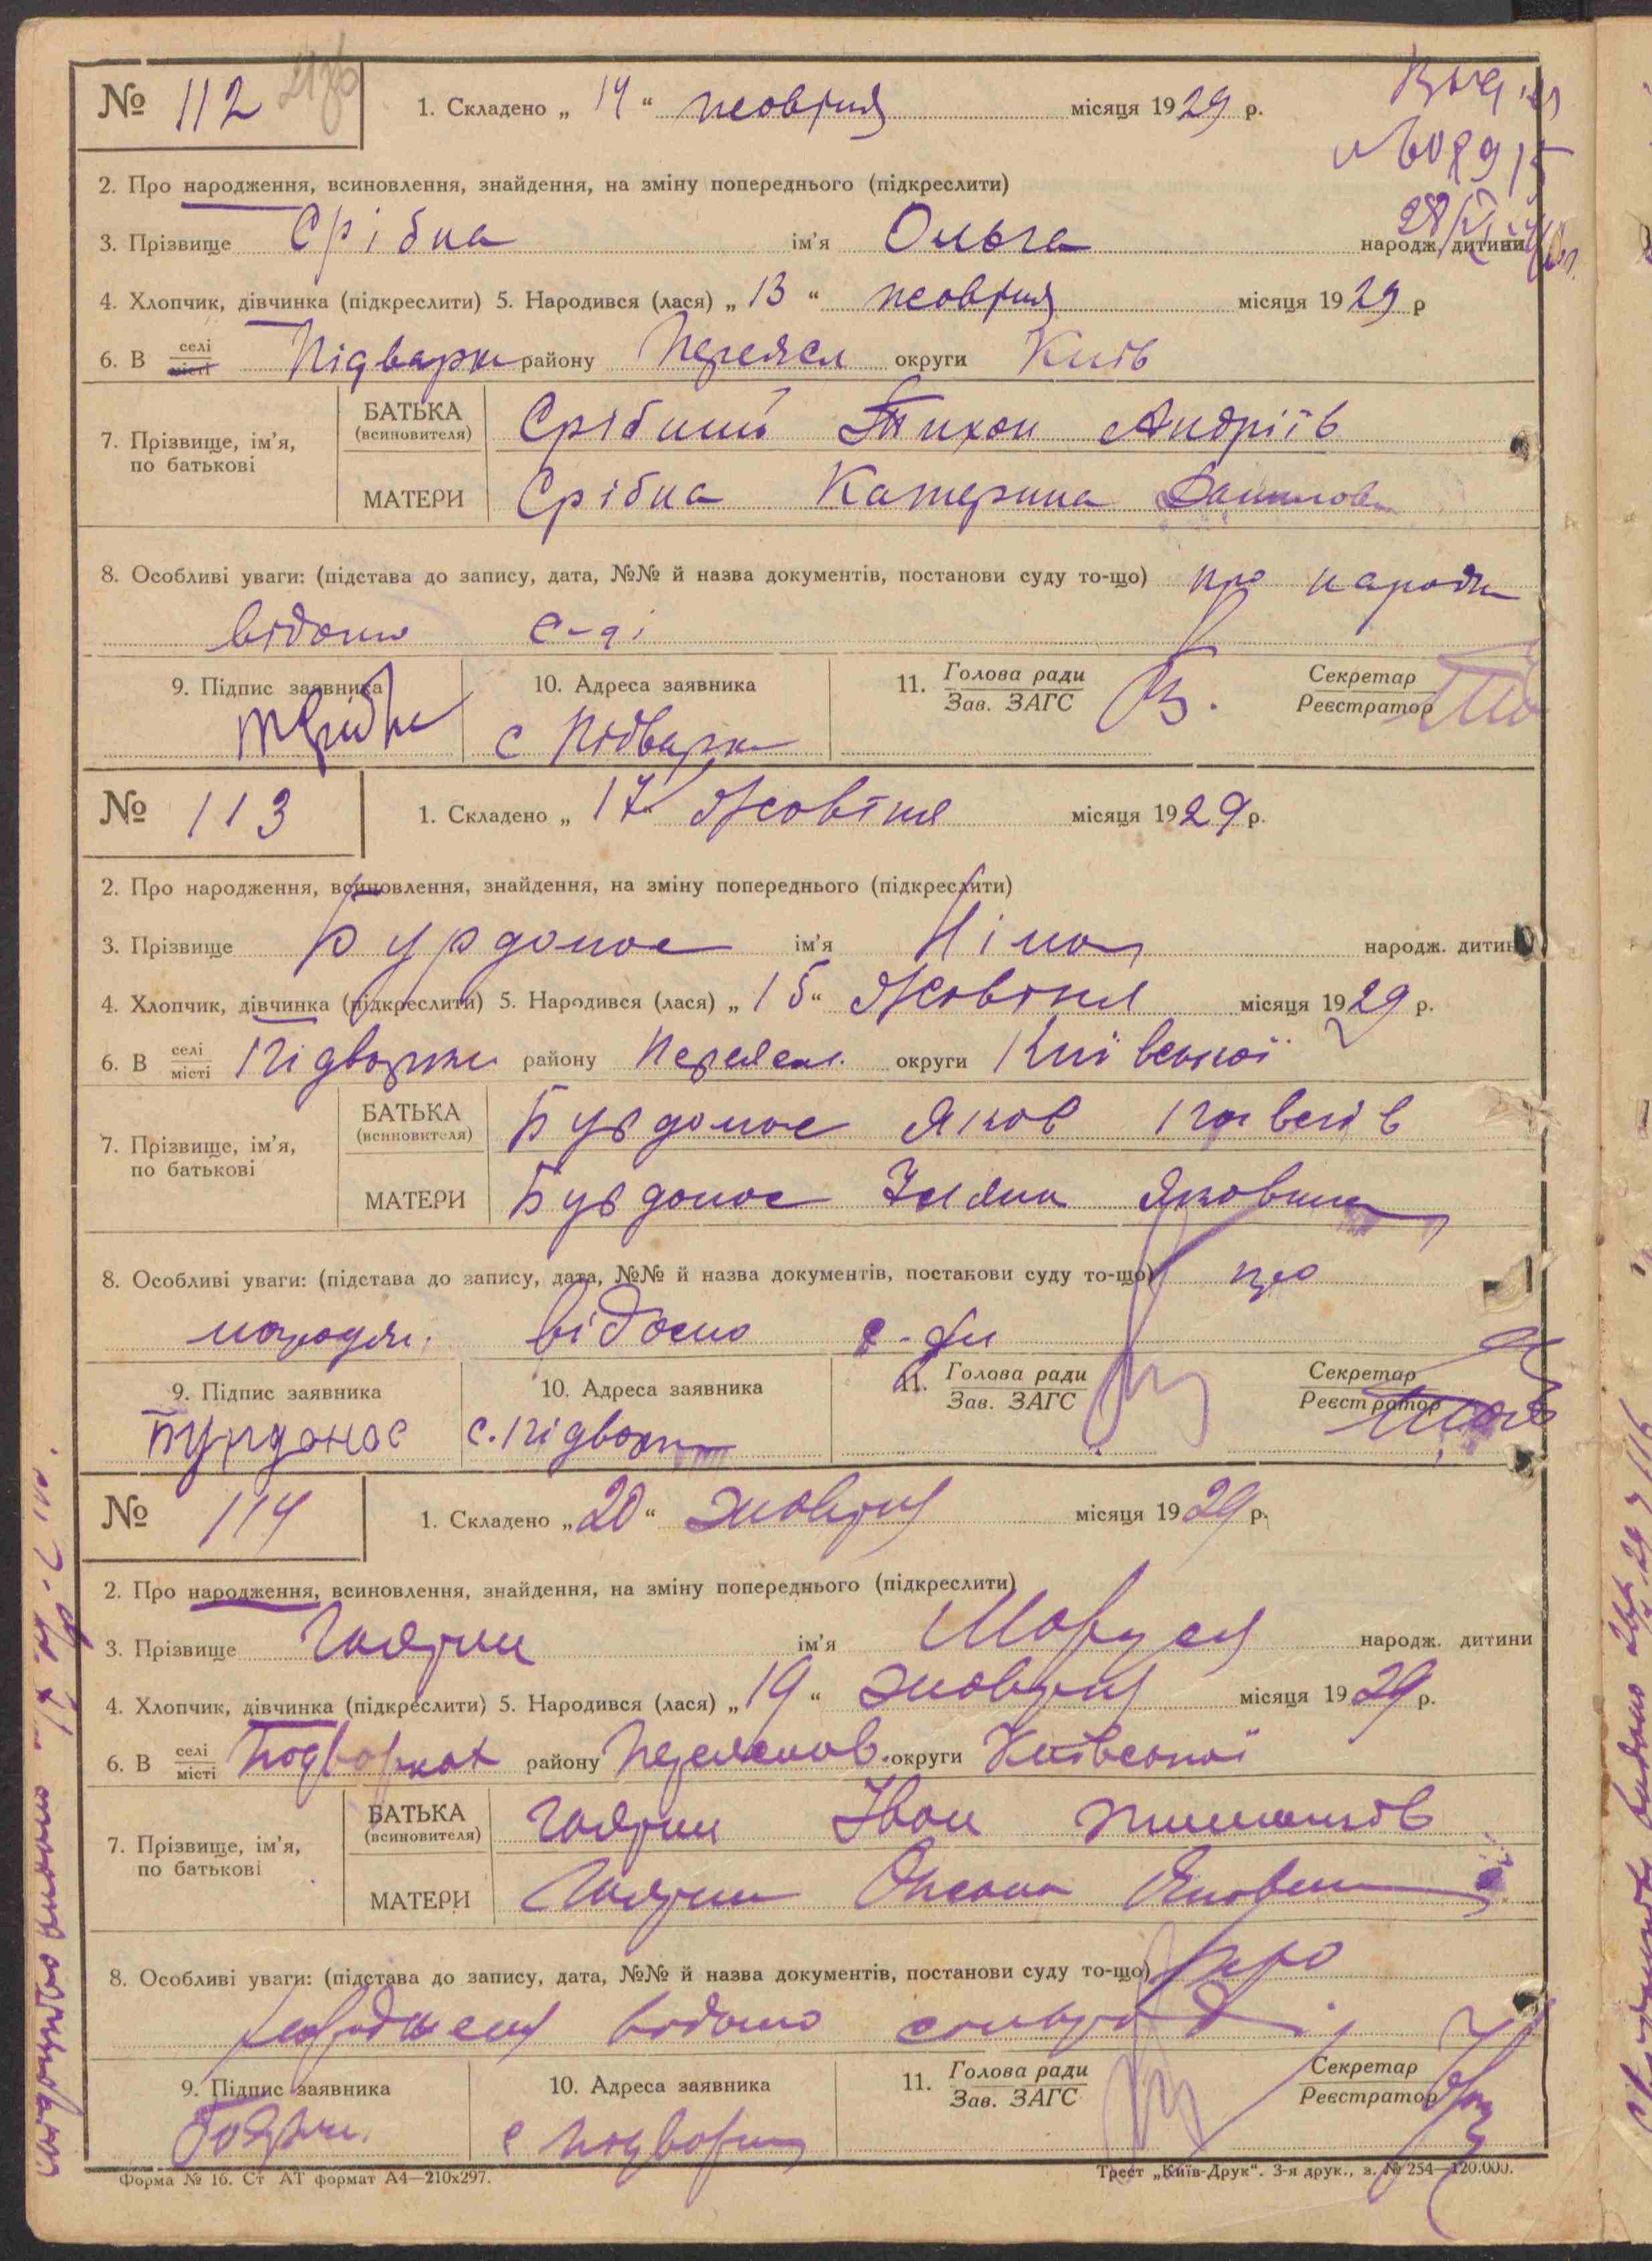 № 112
1. Складено „ 14 “ жовтня місяця 1929 р.
2. Про народження, всиновлення, знайдення, на зміну попереднього (підкреслити)
3. Прізвище Срібна ім'я Ольга народж. дитини
4. Хлопчик, дівчинка (підкреслити) 5. Народився (лася) „ 13 “ жовтня місяця 1929 р
6. В селі місті Підварки району Переясл округи Київ
7. Прізвище, ім'я, по батькові
БАТЬКА (всиновителя) Срібний Тихон Андріїв
МАТЕРИ Срібна Катерина
8. Особливі уваги: (підстава до запису, дата, №№ й назва документів, постанови суду то-що) про народж
відомо с-ді
9. Підпис заявника 10. Адреса заявника 11. Голова ради Зав. ЗАГС Секретар Реєстратор
с Підварки
№ 113
1. Складено „ 17 “ Жовтня місяця 1929 р.
2. Про народження, всиновлення, знайдення, на зміну попереднього (підкреслити)
3. Прізвище Бурдонос ім'я Ніна народж. дитини
4. Хлопчик, дівчинка (підкреслити) 5. Народився (лася) „ 15 “ Жовтня місяця 1929 р.
6. В селі місті Підварки району Переясл. округи Київської
7. Прізвище, ім'я, по батькові
БАТЬКА (всиновителя) Бурдонос Яков
МАТЕРИ Бурдонос Яковна
8. Особливі уваги: (підстава до запису, дата, №№ й назва документів, постанови суду то-що) про
народж. відомо с-ди
9. Підпис заявника 10. Адреса заявника 11. Голова ради Зав. ЗАГС Секретар Реєстратор
Бурдонос с. Підварки
№ 114
1. Складено „ 20 “ жовтня місяця 1929 р.
2. Про народження, всиновлення, знайдення, на зміну попереднього (підкреслити)
3. Прізвище ім'я Маруся народж. дитини
4. Хлопчик, дівчинка (підкреслити) 5. Народився (лася) „ 19 “ жовтня місяця 1929 р.
6. В селі місті Подварках району Переяслав. округи Київської
7. Прізвище, ім'я, по батькові
БАТЬКА (всиновителя) Іван
МАТЕРИ Оксана
8. Особливі уваги: (підстава до запису, дата, №№ й назва документів, постанови суду то-що) про
народження відомо сільраді
9. Підпис заявника 10. Адреса заявника 11. Голова ради Зав. ЗАГС Секретар Реєстратор
с Подварки
Форма № 16. Ст АТ формат А4—210х297.
Трест „Київ-Друк“. 3-я друк., з. № 254—120.000.